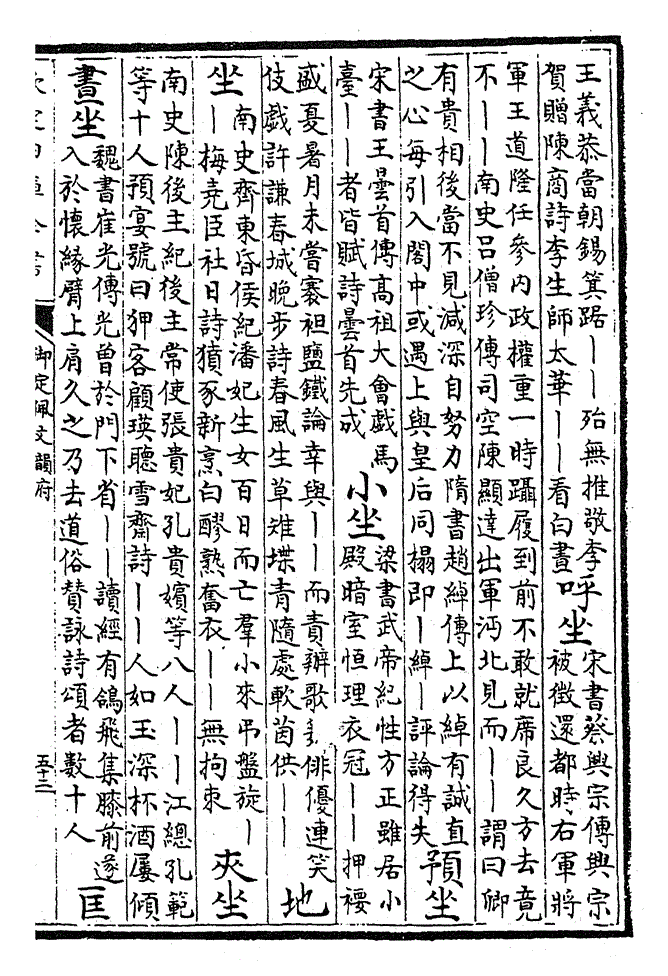 王義恭當朝錫箕踞——殆無推敬李
賀贈陳商詩李生師太華——看白晝
呼坐
宋書蔡興宗傳興宗
被徵還都時右軍將
軍王道隆任參內政權重一時躡履到前不敢就席良久方去竟
不——南史呂僧珍傳司空陳顯達出軍沔北見而——謂曰卿
有貴相後當不見減深自努力隋書趙綽傳上以綽有誠直
之心每引入閣中或遇上與皇后同榻即—綽—評論得失
預坐
宋書王曇首傳高祖大會戲馬
臺——者皆賦詩曇首先成
小坐
梁書武帝紀性方正雖居小
殿暗室恒理衣冠——押褄
盛夏暑月未嘗褰袒鹽鐵論幸與——而責辦歌俳優連笑
伎戲許謙春城晚步詩春風生草雉堞青隨處軟茵供——
地
坐
南史齊東昏侯紀潘妃生女百日而亡羣小來弔盤旋—
—梅堯臣社日詩豶豕新烹白醪熟奮衣——無拘束
夾坐
南史陳後主紀後主常使張貴妃孔貴嬪等八人——江總孔範
等十人預宴號曰狎客顧瑛聽雪齋詩——人如玉深杯酒屢傾
晝坐
魏書崔光傳光曾於門下省——讀經有鴿飛集膝前遂
入於懷緣臂上肩久之乃去道俗贊詠詩頌者數十人
匡
欽定四庫全書
御定佩文韻府
五十三